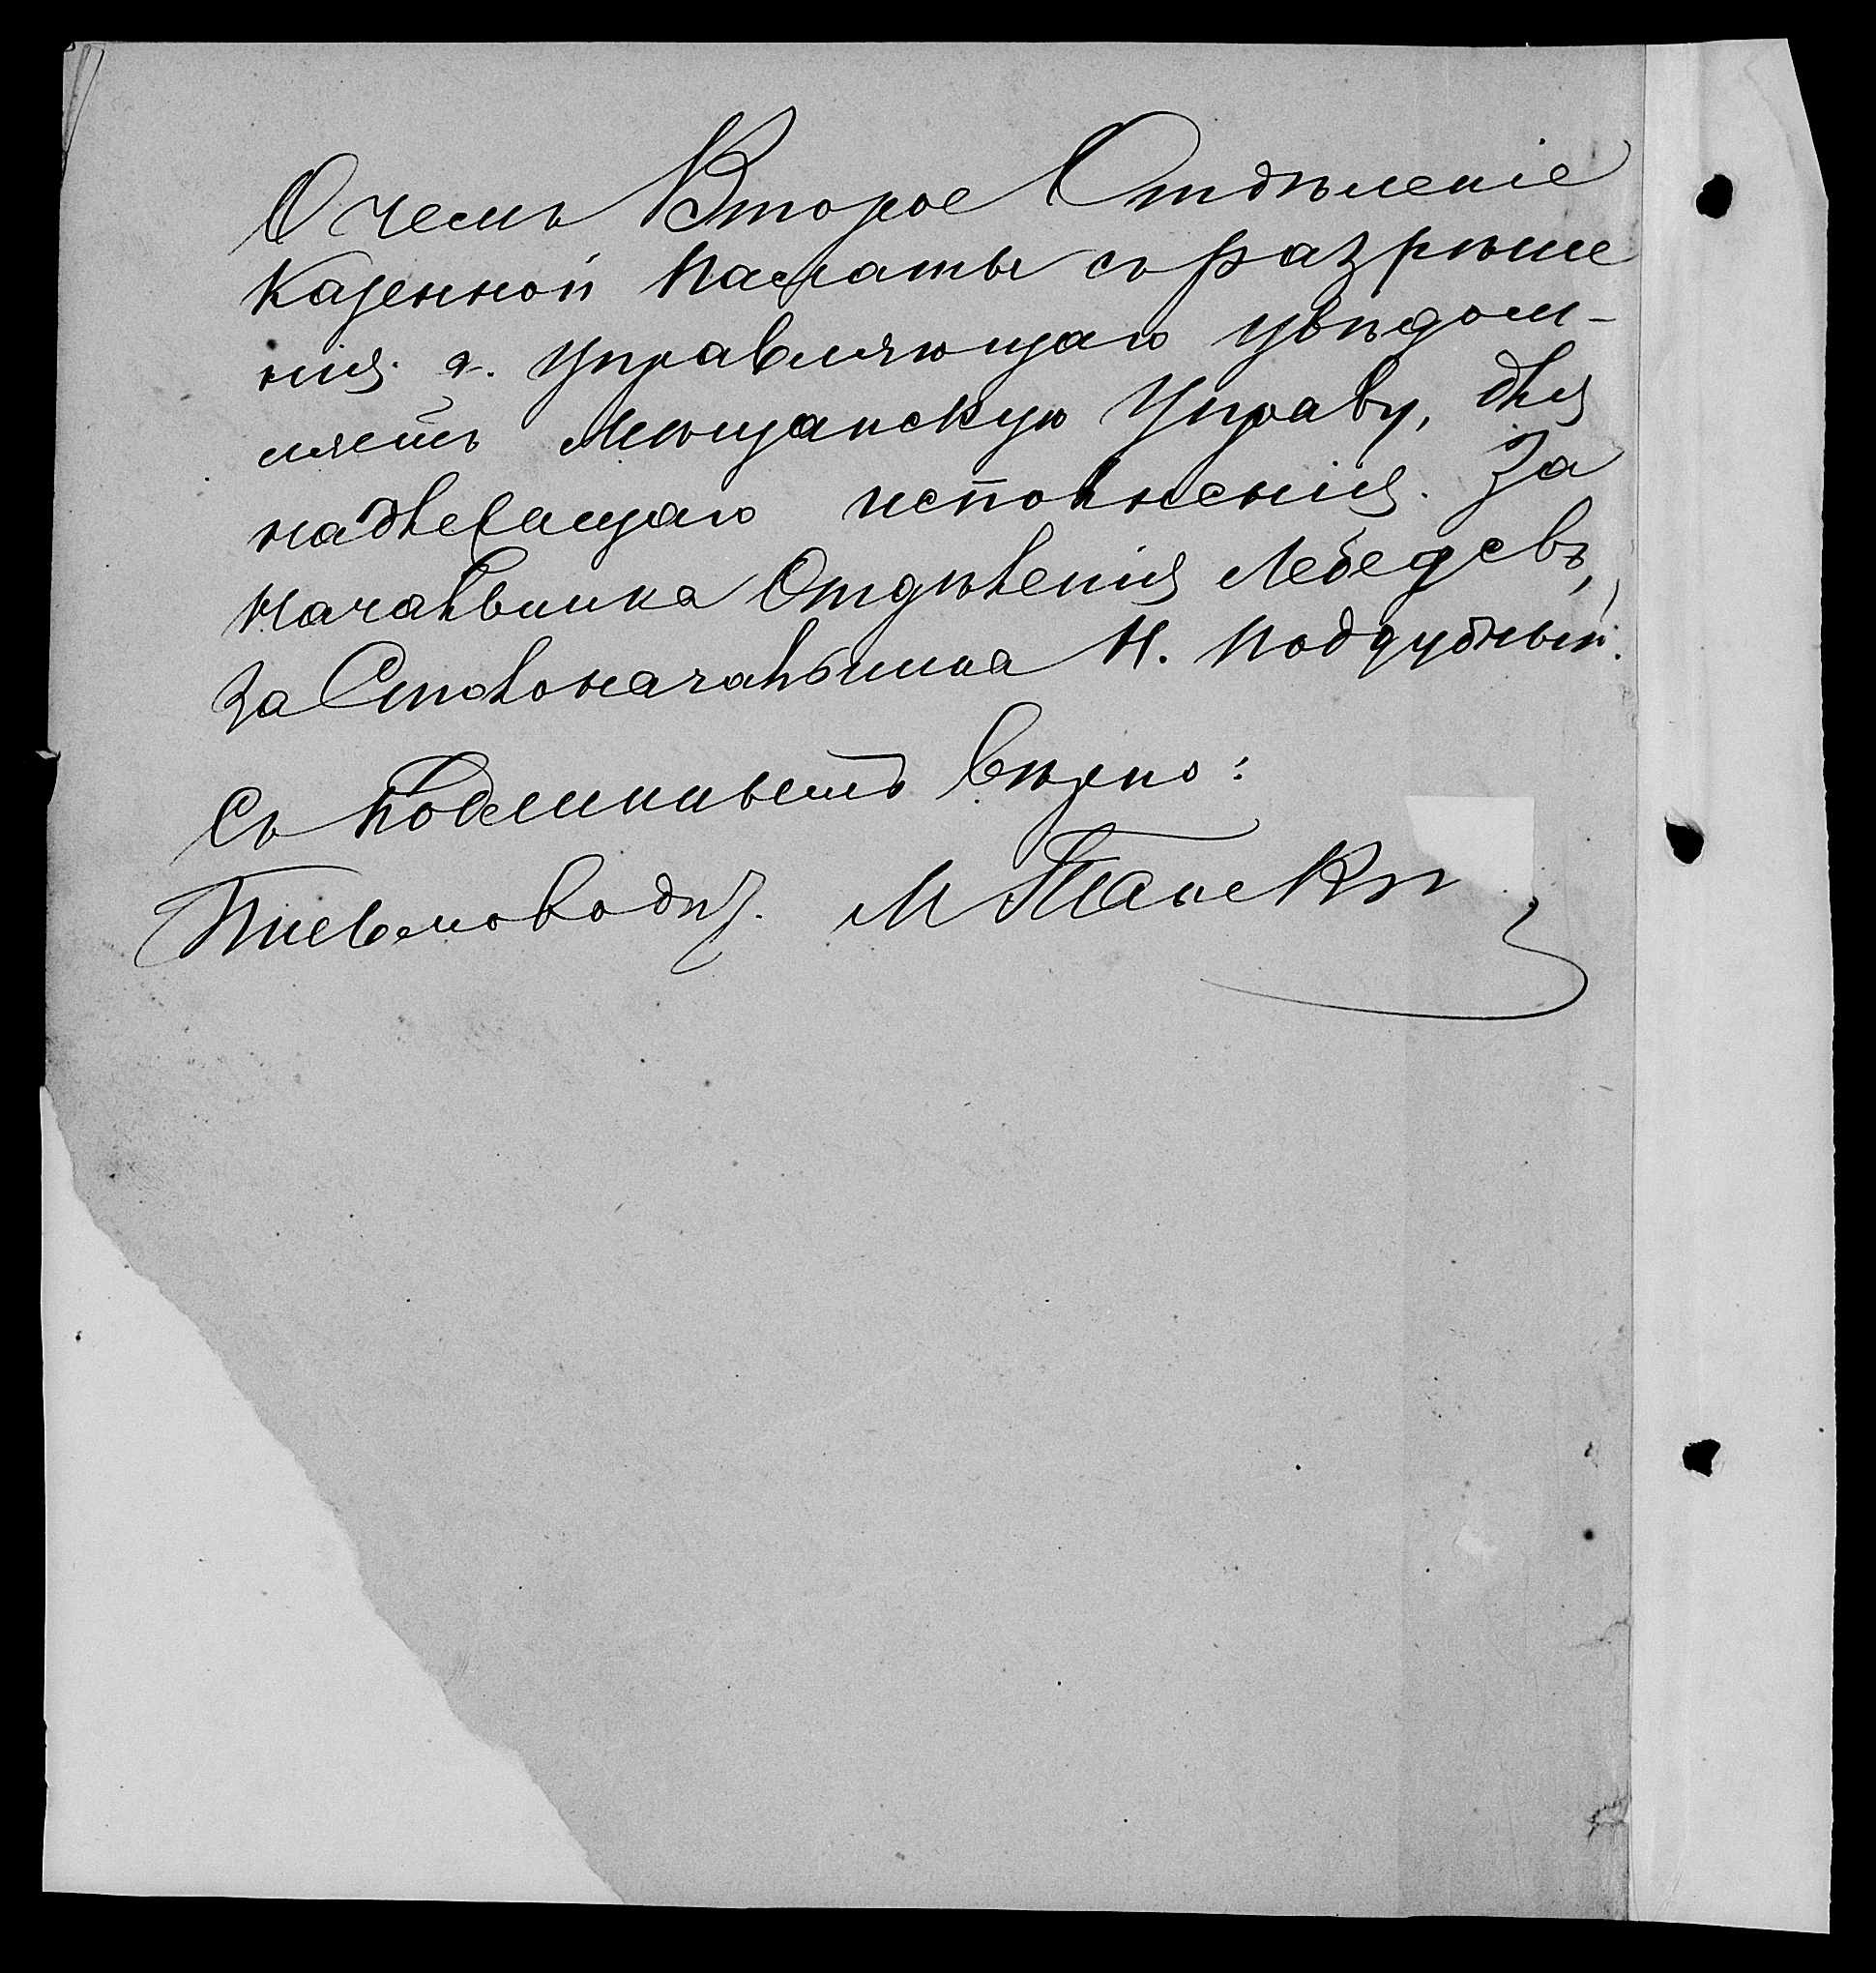 О чемъ Второе Отдѣленіе
Казенной Палаты съ разрѣше
нія г. Управляющаго увѣдом-
ляетъ Мѣщанскую Управу, для
надлежащаго исполненія. За
Начальника Отдѣленія Лебедевъ,
За Столоначальника Н. Поддубный.
Съ подлиннымъ вѣрно:
Письмоводит. М